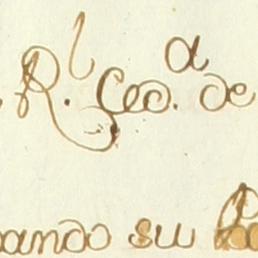 R.l Ced.a de
ando su